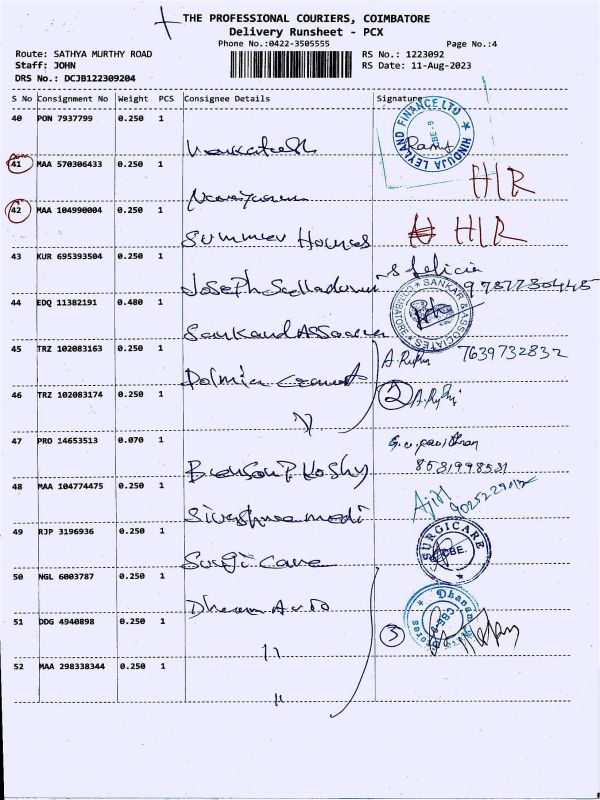 THE PROFESSIONAL COURIERS, COIMBATORE
Delivery Runsheet - PCX
Phone No.:0422-3505555
Page No.:4
Route: SATHYA MURTHY ROAD
Staff: JOHN
DRS No.: DCJB122309204
RS No.: 1223092
RS Date: 11-Aug-2023
S No Consignment No Weight PCS Consignee Details Signature
40 PON 7937799 0.250 1
Venkatesh
HINDUJA LEYLAND FINANCE LTD
CBE-9
Ramya
41 MAA 570306433 0.250 1
Narayanan
H/R
42 MAA 104990004 0.250 1
Summer Homes
H/R
43 KUR 695393504 0.250 1
Joseph
S felicia
9787730445
44 EDQ 11382191 0.480 1
Sankar Associates
SANKAR & ASSOCIATES
COIMBATORE
45 TRZ 102083163 0.250 1
Dalmia Cement
7639732832
46 TRZ 102083174 0.250 1
"
2
47 PRO 14653513 0.070 1
Benson P Koshy
8531998531
48 MAA 104774475 0.250 1
medi
Ajith
49 RJP 3196936 0.250 1
Surgi Care
SURGICARE
CBE.
50 NGL 6003787 0.250 1
Dhanam Auto
Dhanam
51 DDG 4940898 0.250 1
"
3
52 MAA 298338344 0.250 1
"